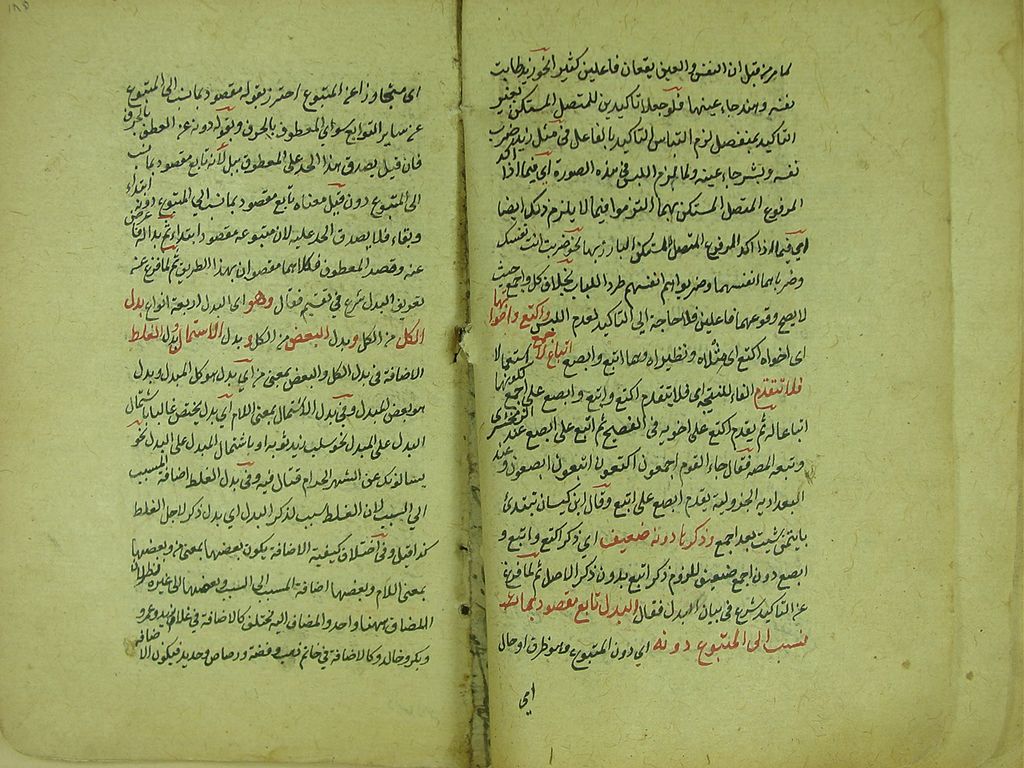 لما مر من قبل ان النفس والعين يقعان فاعلين كثيرا نحو زيد طابت
نفسه وهند جاء عينها فلو جعلا تاكيدين للمتصل المستكن بغير
التاكيد بمنفصل لزم التباس التاكيد بالفاعل في مثل زيد ضرب
نفسه وبشر جاء عينه ولما لزم اللبس في هذه الصورة اي فيما اذا اكد
المرفوع المتصل المستكن بهما التزموا فيما لا يلزم ذلك ايضا
اي فيما اذا اكد المرفوع المتصل البارز بهما نحو ضربت انت نفسك
وضربا هما انفسهما وضربوا هم انفسهم طردا للباب بخلاف كل واجمع حيث
لا يصح وقوعهما فاعلين فلا حاجة الى التاكيد لعدم اللبس واكتع واخواه
اي اخواه اكتع اي مثلاه ونظيراه وهما ابتع وابصع اتباع لاجمع
فلا تتقدم الفاء للنتيجة اي فلا يتقدم اكتع وابتع وابصع على اجمع لكونها
اتباعا له ثم يقدم اكتع على اخويه في الفصيح ثم ابتع على ابصع عند
وتبعه المصه فقال جاء القوم اجمعون اكتعون ابتعون ابصعون وعند
البغدادية الجزولية يقدم ابصع على ابتع وقال ابن كيسان تبتدئ
بايتهن شئت بعد اجمع وذكرها دونه ضعيف اي ذكر اكتع وابتع و
ابصع دون اجمع ضعيف للزوم ذكر التبع بدون ذكر الاصل ثم لما فرغ
عن التاكيد شرع في بيان البدل فقال البدل تابع مقصود بما
نسب الى المتبوع دونه اي دون المتبوع وهو ظرف او حال
اي
اي متجاوزا عن المتبوع احترز بقوله مقصود بما نسب الى المتبوع
عن ساير التوابع سوى المعطوف بالحرف وبقوله دونه عن العطف بالحرف
فان قيل يصدق هذا الحد على المعطوف ببل لانه تابع مقصود بما نسب
الى المتبوع دون قيل معناه تابع مقصود بما نسب الى المتبوع دونه ابتداء
وبقاء فلا يصدق الحد عليه لان متبوعه مقصود ابتداء ثم بدا له فاعرض
عنه وقصد المعطوف فكلاهما مقصودان بهذا الطريق ثم لما فرغ عن
تعريف البدل شرع في تقسيمه فقال وهو اي البدل اربعة انواع بدل
الكل من الكل وبدل البعض من الكل وبدل الاشتمال وبدل الغلط
الاضافة في بدل الكل والبعض بمعنى من اي بدل هو كل المبدل وبدل
هو بعض المبدل وفي بدل الاشتمال بمعنى اللام اي بدل يختص غالبا باشتمال
البدل على المبدل نحو سلب زيد ثوبه او باشتمال المبدل على البدل نحو
يسألونك عن الشهر الحرام قتال فيه وفي بدل الغلط اضافة المسبب
الى السبب لان الغلط سبب لذكر البدل اي بدل ذكر لاجل الغلط
كذا قيل وفي اختلاف كيفية الاضافة بكون بعضها بمعنى من وبعضها
بمعنى اللام وبعضها اضافة المسبب الى السبب وبعضها الى غيره نظر لان
المضاف ههنا واحد والمضاف اليه مختلف كالاضافة في غلام زيد وعمرو
وبكر وخالد وكالاضافة في خاتم ذهب وفضة ورصاص وحديد فيكون الاضافة